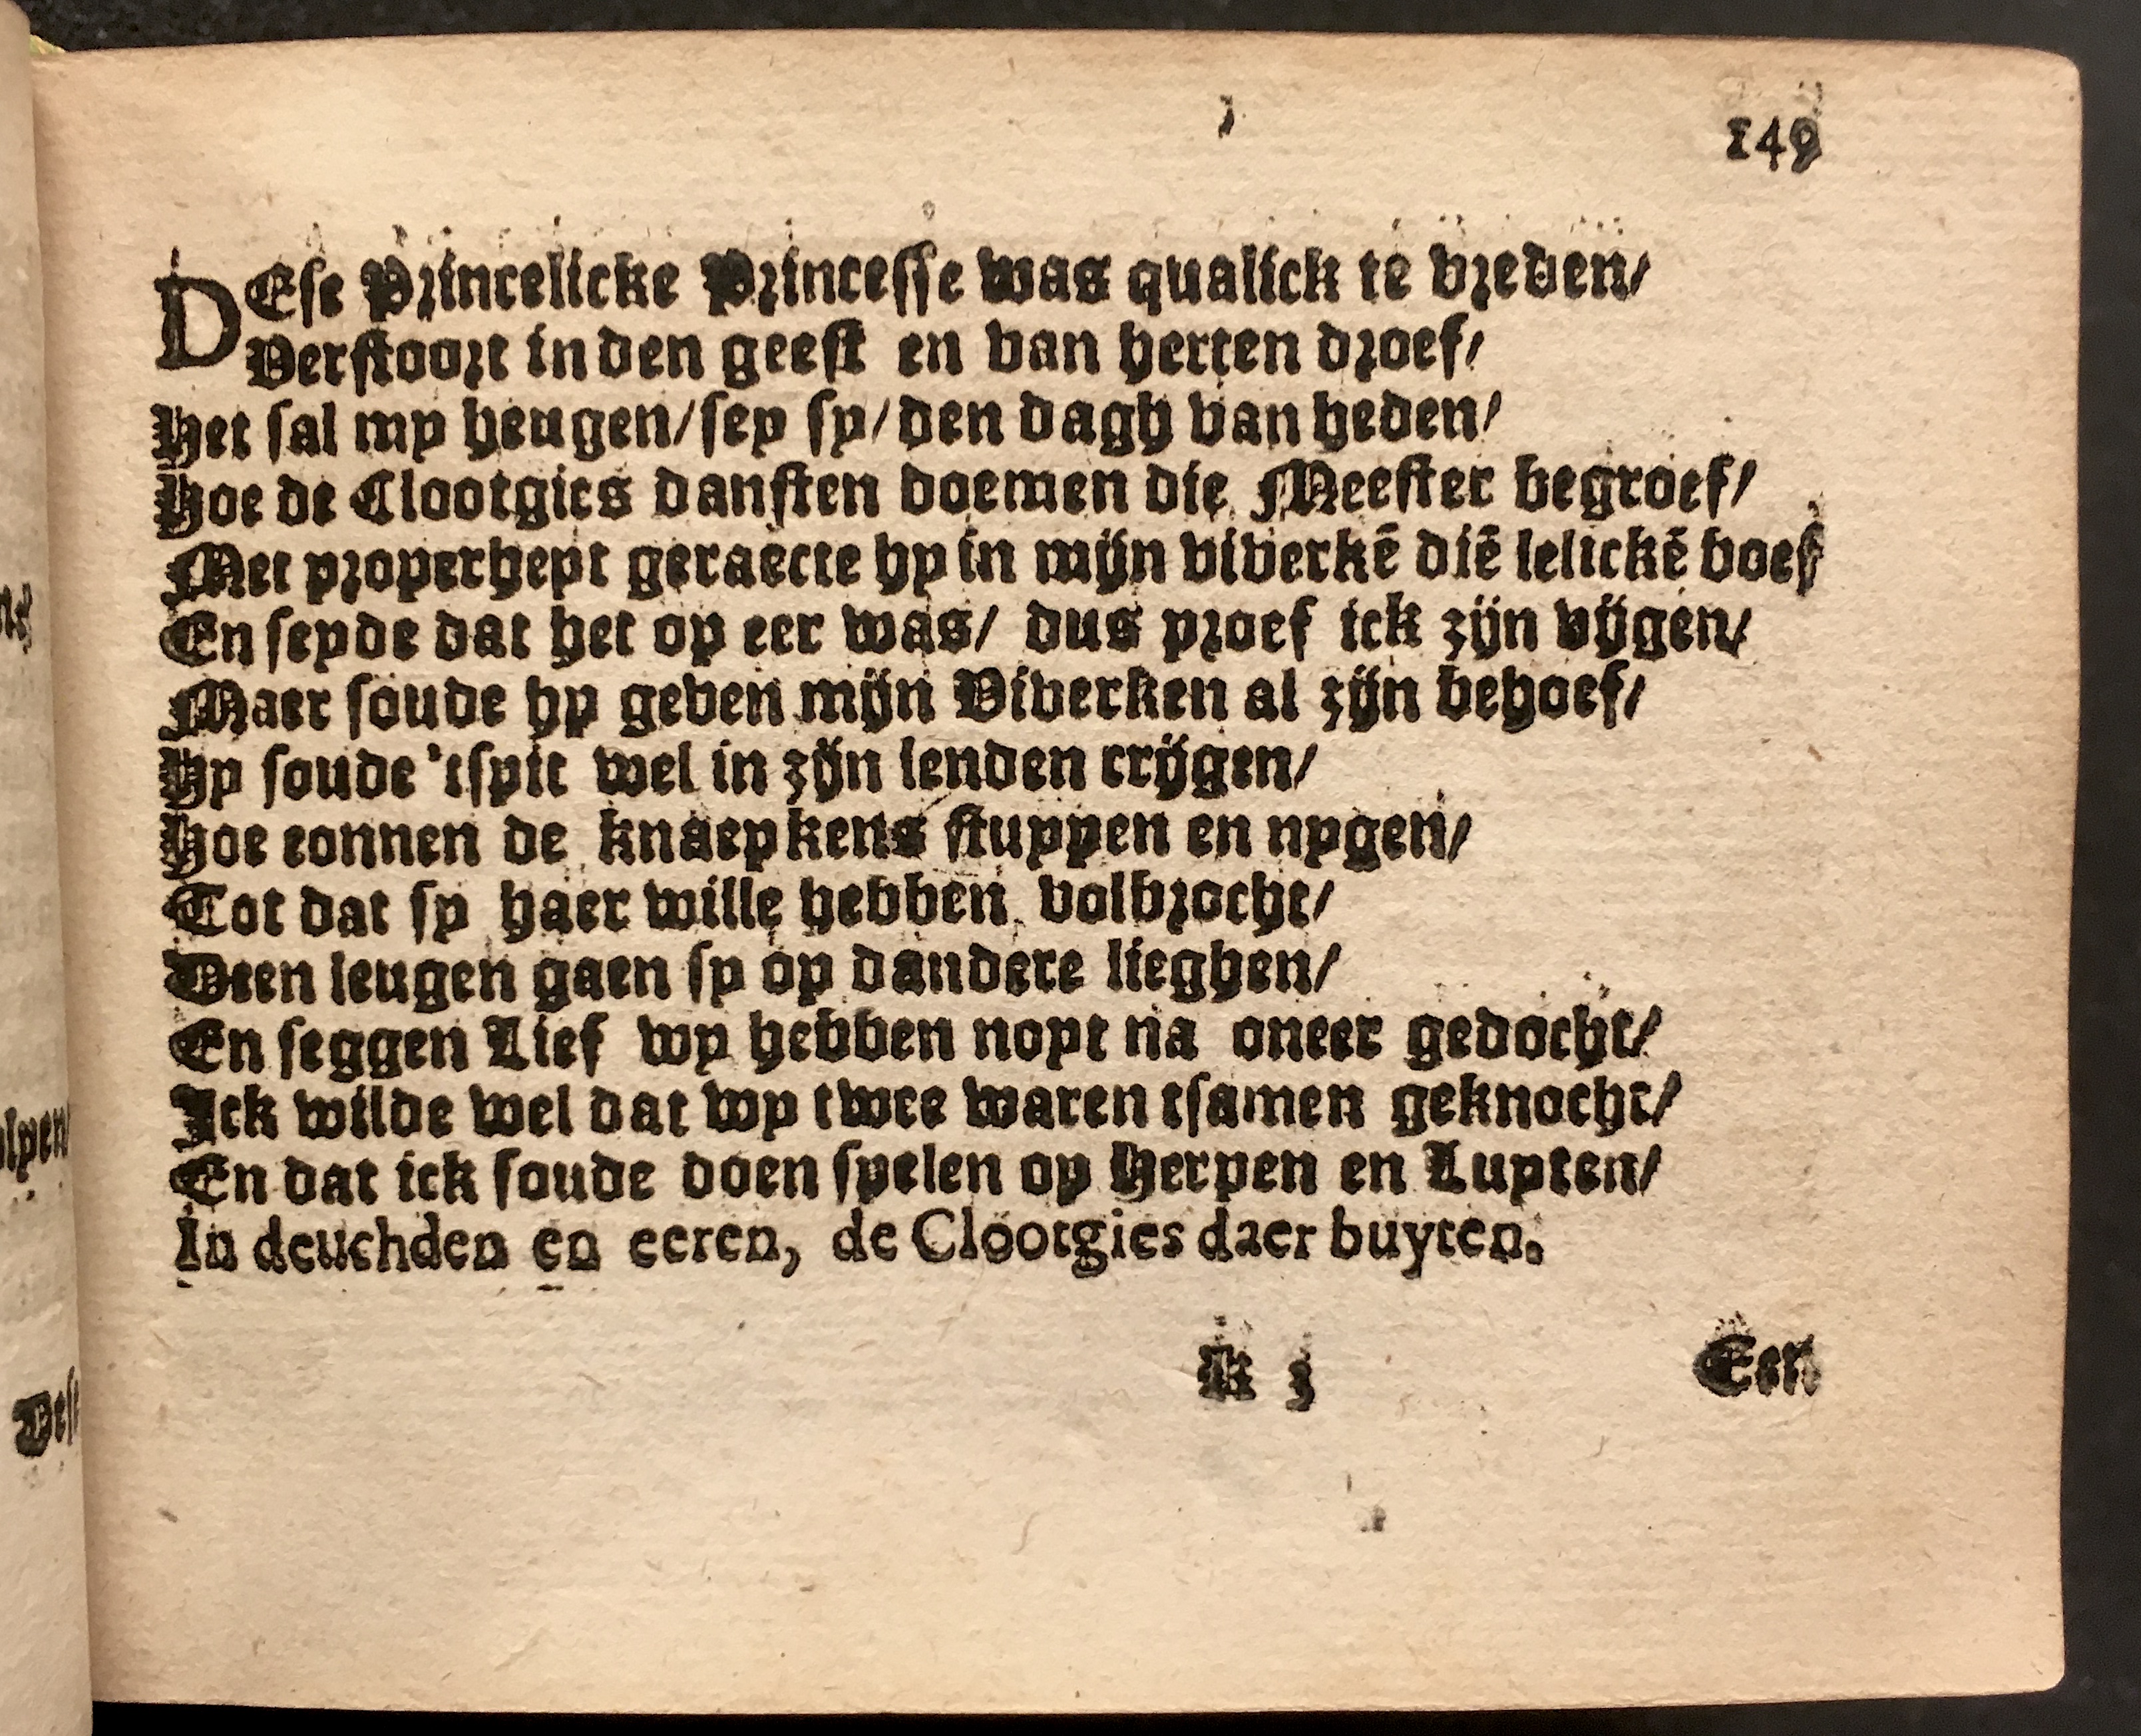 149
DEse Princelicke Princesse was qualick te vreden/
Verstoort in den geest en van herten droef/
Het sal my heugen/sey sy/den dagh van heden/
Hoe de Clootgies dansten doemen die Meester begroef/
Met properheyt geraecte hy in mijn viverkē diē lelickē boef
En seyde dat het op eer was/ dus proef ick zijn vijgen/
Maer soude hy geven mijn Viverken al zijn behoef/
Hy soude 'tspit wel in zijn lenden crijgen/
Hoe connen de knaepkens stuypen en nygen/
Tot dat sy haer wille hebben volbrocht/
Deen leugen gaen sy op dandere lieghen/
En seggen Lief wy hebben noyt na oneer gedocht/
Ick wilde wel dat wy twee waren tsamen geknocht/
En dat ick soude doen spelen op Herpen en Luyten/
In deuchden en eeren, de Clootgies daer buyten.
K 3
Een